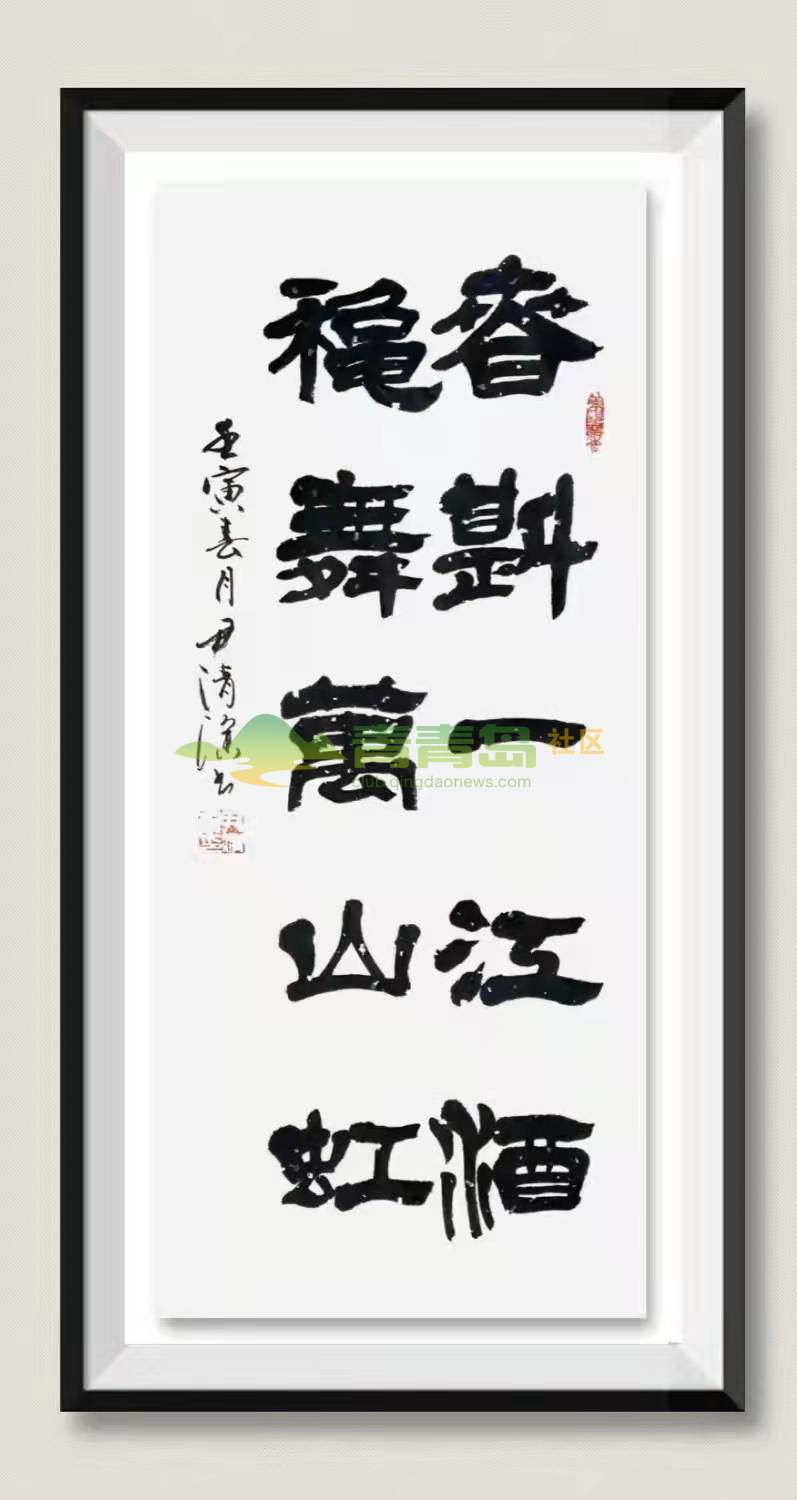 春斟一江酒
龝舞萬山虹
壬寅春月尹清书
青青岛社区
club.qingdaonews.com